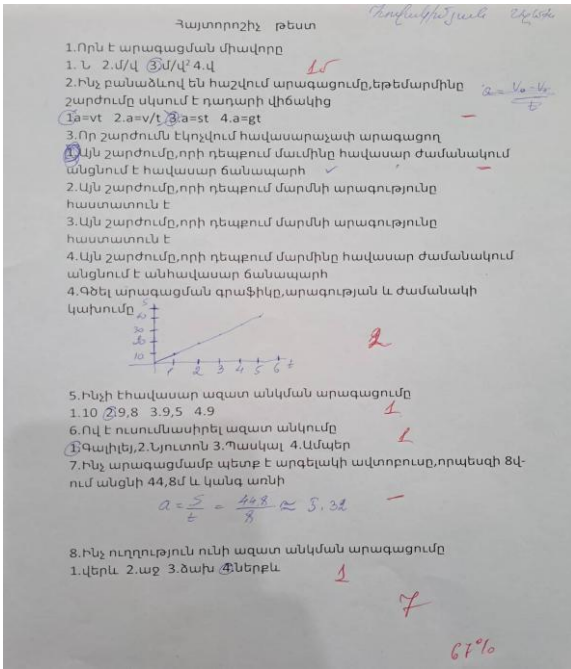 Հայտորոշիչ թեստ
1.Որն է արագացման միավորը
1. Ն 2.մ/վ 3.մ/վ² 4.վ
2.Ինչ բանաձևով են հաշվում արագացումը,եթեմարմինը
շարժումը սկսում է դադարի վիճակից
1.a=vt 2.a=v/t 3.a=st 4.a=gt
—
3.Որ շարժումն էկոչվում հավասարաչափ արագացող
1.Այն շարժումը,որի դեպքում մաւմինը հավասար ժամանակում
անցնում է հավասար ճանապարհ ✓
—
2.Այն շարժումը,որի դեպքում մարմնի արագությունը
հաստատուն է
3.Այն շարժումը,որի դեպքում մարմնի արագությունը
հաստատուն է
4.Այն շարժումը,որի դեպքում մարմինը հավասար ժամանակում
անցնում է անհավասար ճանապարհ
4.Գծել արագացման գրաֆիկը,արագության և ժամանակի
կախումը
2
10
1 2 3 4 5 6 t
5.Ինչի էհավասար ազատ անկման արագացումը
1.10 2.9,8 3.9,5 4.9 1
6.Ով է ուսումնասիրել ազատ անկումը
1.Գալիլեյ,2.Նյուտոն 3.Պասկալ 4.Ամպեր 1
7.Ինչ արագացմամբ պետք է արգելակի ավտոբուսը,որպեսզի 8վ-
ում անցնի 44,8մ և կանգ առնի
a = S/t = 448/8 ≈ 5,32 —
8.Ինչ ուղղություն ունի ազատ անկման արագացումը
1.վերև 2.աջ 3.ձախ 4.ներքև 1
7
67%